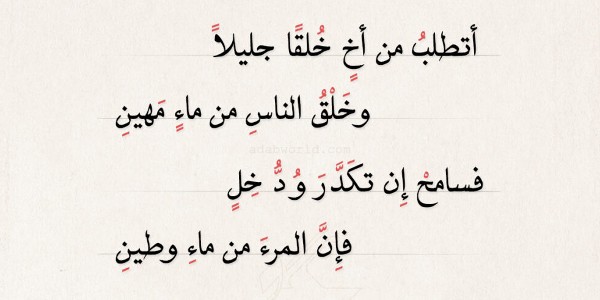 أتطلبُ من أخٍ خُلقًا جليلاً
وخَلْقُ الناسِ من ماءٍ مَهينِ
adabworld.com
فسامحْ إِن تكَدَّرَ وُدُّ خِلٍ
فإِنَّ المرءَ من ماءِ وطينِ